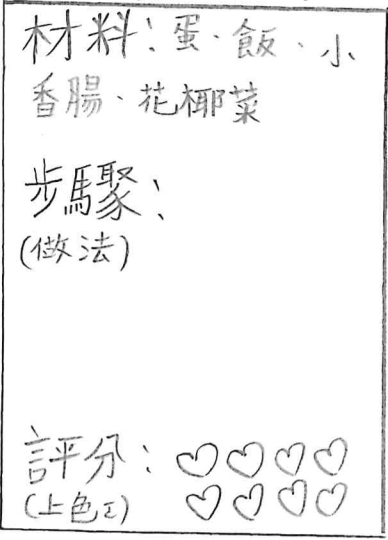 材料：蛋、飯、小
香腸、花椰菜
步驟：
(做法)
評分：♡♡♡♡
(上色ㄛ) ♡♡♡♡